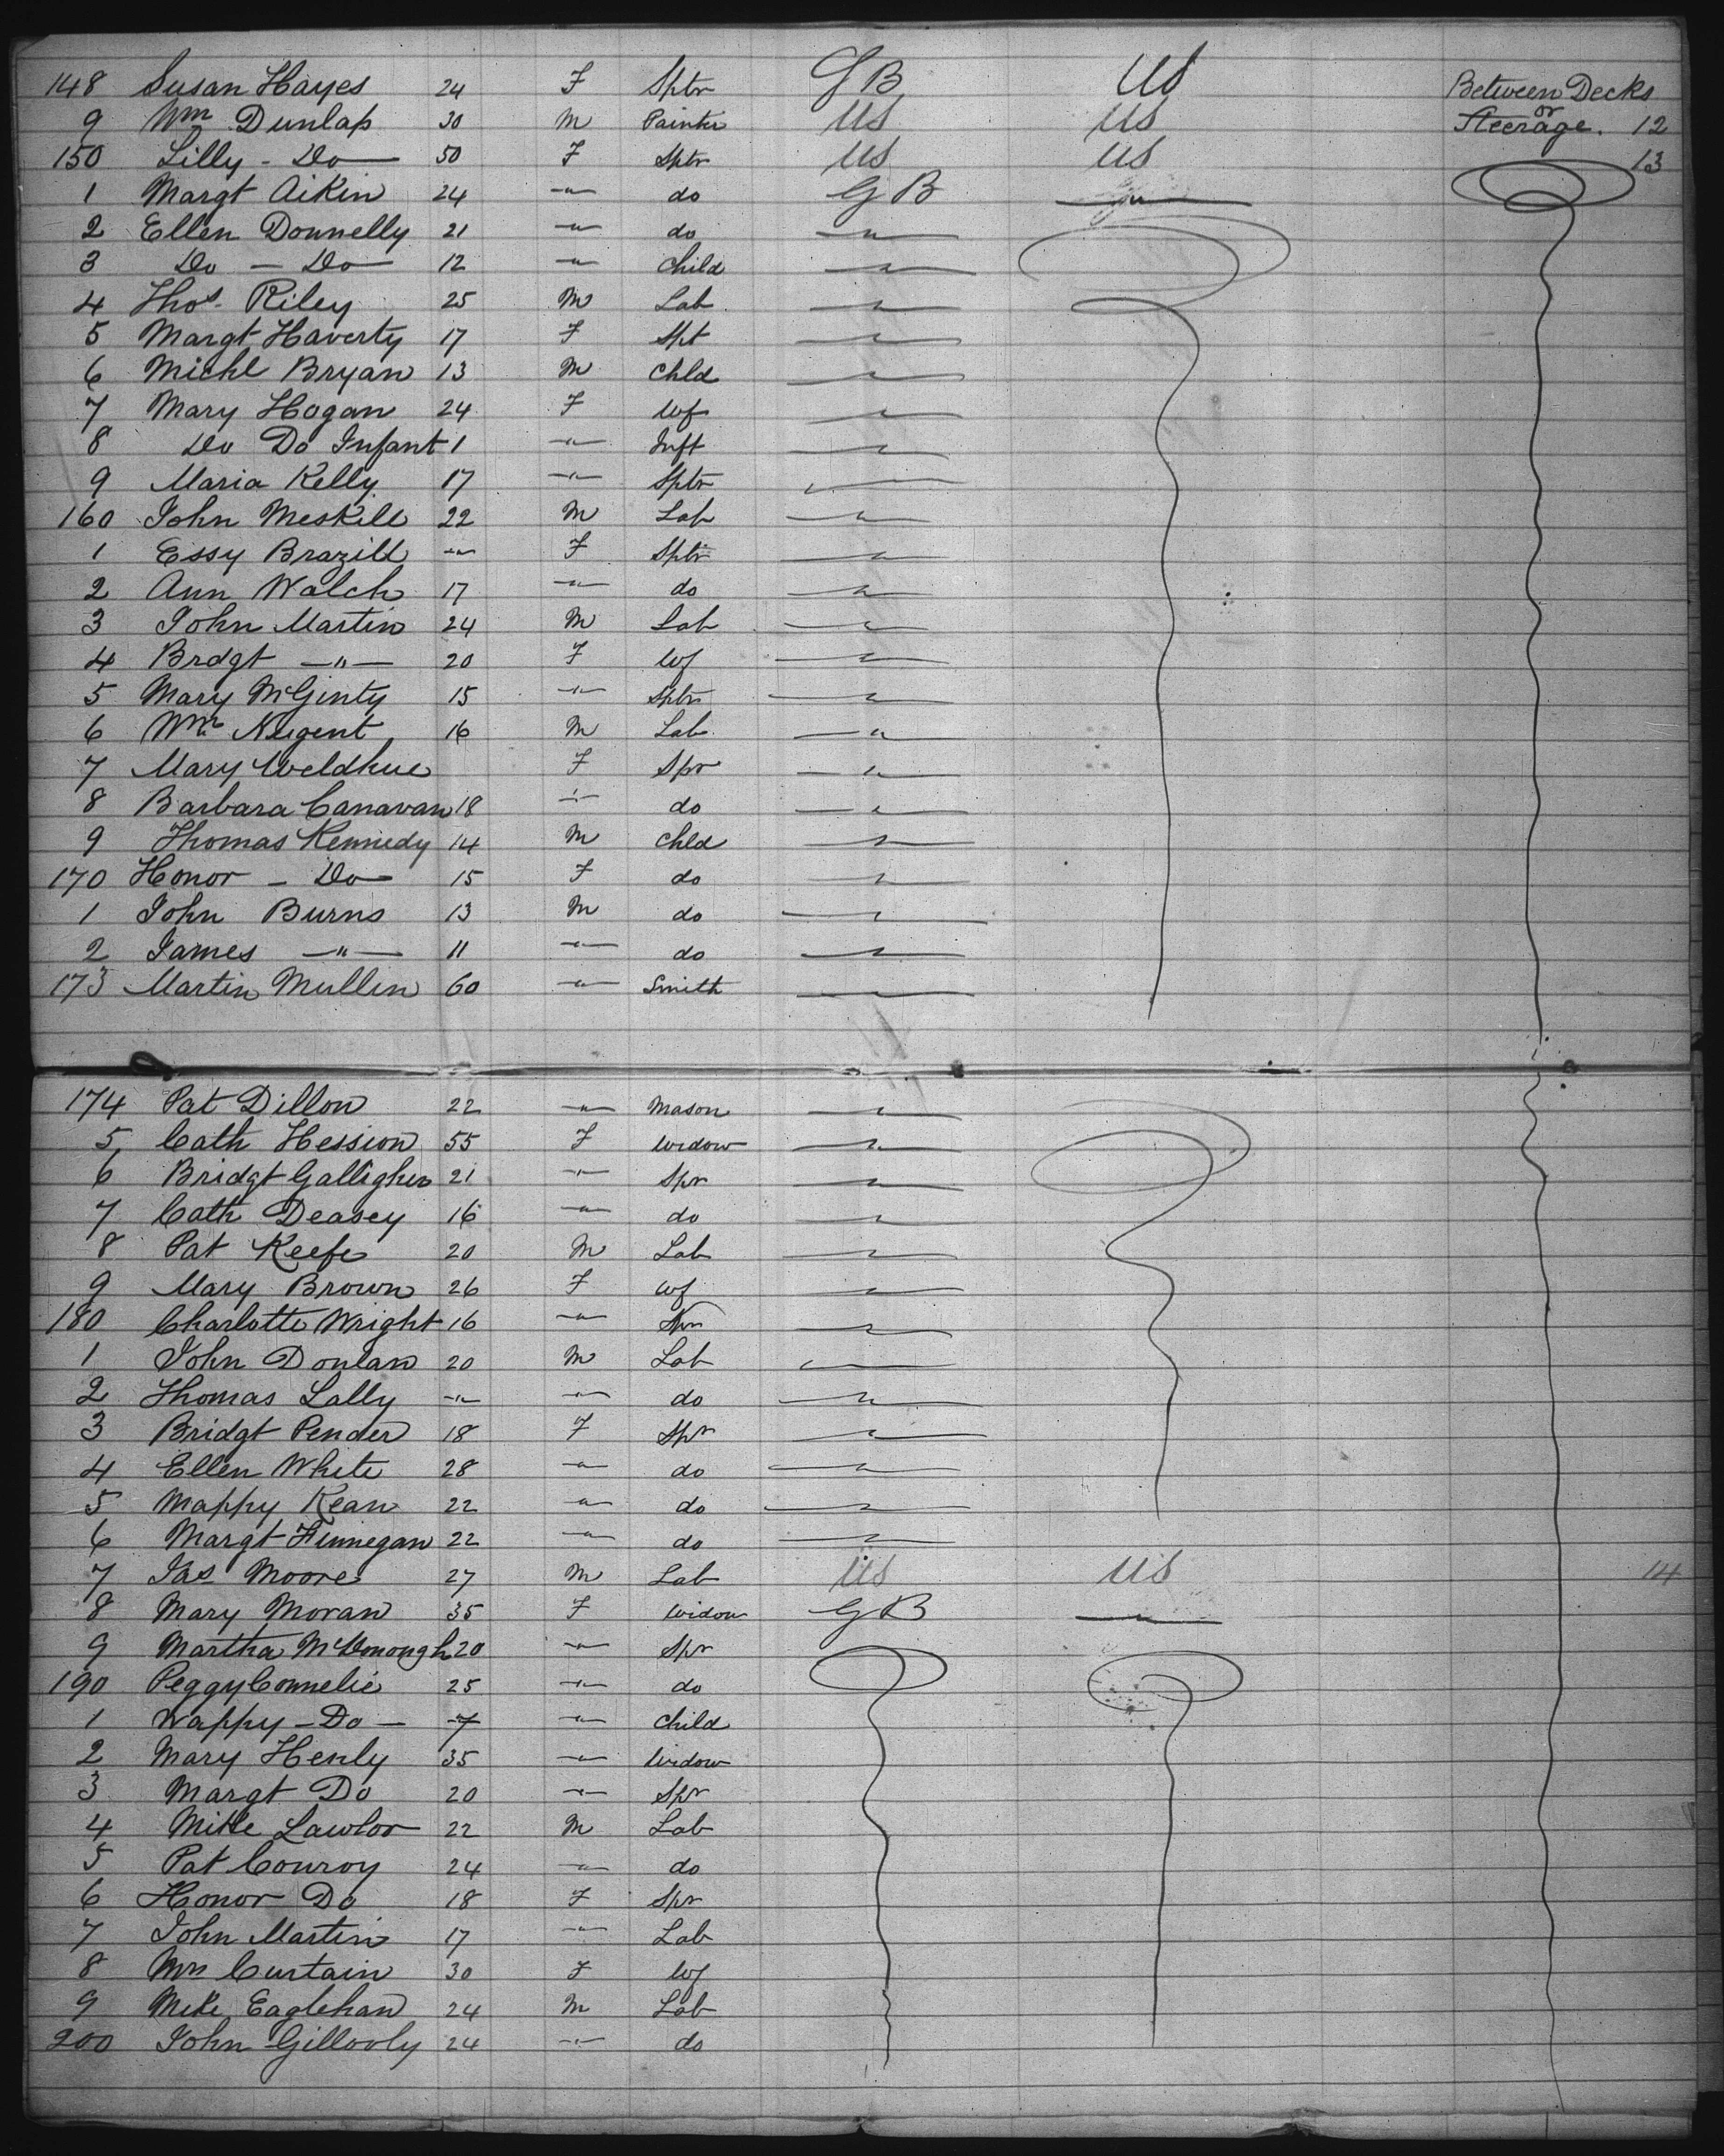 148 Susan Hayes 24 F Sptr GB US Between Decks
9 Wm Dunlap 30 M Painter US US or Steerage. 12
150 Lilly - Do 50 F Sptr US US 13
1 Margt Aikin 24 —"— do GB —"—
2 Ellen Donnelly 21 —"— do —"—
3 Do — Do 12 —"— Child —"—
4 Thos Riley 25 M Lab —"—
5 Margt Haverty 17 F Spt —"—
6 Michl Bryan 13 M Chld —"—
7 Mary Hogan 24 F Wf —"—
8 Do Do Infant 1 —"— Inft —"—
9 Maria Kelly 17 —"— Sptr —"—
160 John Meskill 22 M Lab —"—
1 Essy Brazill —"— F Sptr —"—
2 Ann Walch 17 —"— do —"—
3 John Martin 24 M Lab —"—
4 Brdgt —"— 20 F Wf —"—
5 Mary McGinty 15 —"— Sptr —"—
6 Wm Nugent 16 M Lab —"—
7 Mary F Spr —"—
8 Barbara Canavan 18 —"— do —"—
9 Thomas Kennedy 14 M Chld —"—
170 Honor — Do 15 F do —"—
1 John Burns 13 M do —"—
2 James —"— 11 —"— do —"—
173 Martin Mullin 60 —"— Smith —"—
174 Pat Dillon 22 —"— Mason —"—
5 Cath Hession 55 F Widow —"—
6 Bridgt Galligher 21 —"— Spr —"—
7 Cath Deasey 16 —"— do —"—
8 Pat Keefe 20 M Lab —"—
9 Mary Brown 26 F Wf —"—
180 Charlotte Wright 16 —"— Spr —"—
1 John Donlan 20 M Lab —"—
2 Thomas Lally —"— —"— do —"—
3 Bridgt Pender 18 F Spr —"—
4 Ellen White 28 —"— do —"—
5 Mappy Kean 22 —"— do —"—
6 Margt Finnegan 22 —"— do —"—
7 Jas Moore 27 M Lab US US 14
8 Mary Moran 35 F Widow GB —"—
9 Martha McDonough 20 —"— Spr
190 Peggy Connelie 25 —"— do
1 Wappy — Do — 7 —"— Child
2 Mary Henly 35 —"— Widow
3 Margt Do 20 —"— Spr
4 Mike Lawlor 22 M Lab
5 Pat Conroy 24 —"— do
6 Honor Do 18 F Spr
7 John Martin 17 —"— Lab
8 Curtain 30 F Wf
9 Mike Eaglehan 24 M Lab
200 John Gillooly 24 —"— do